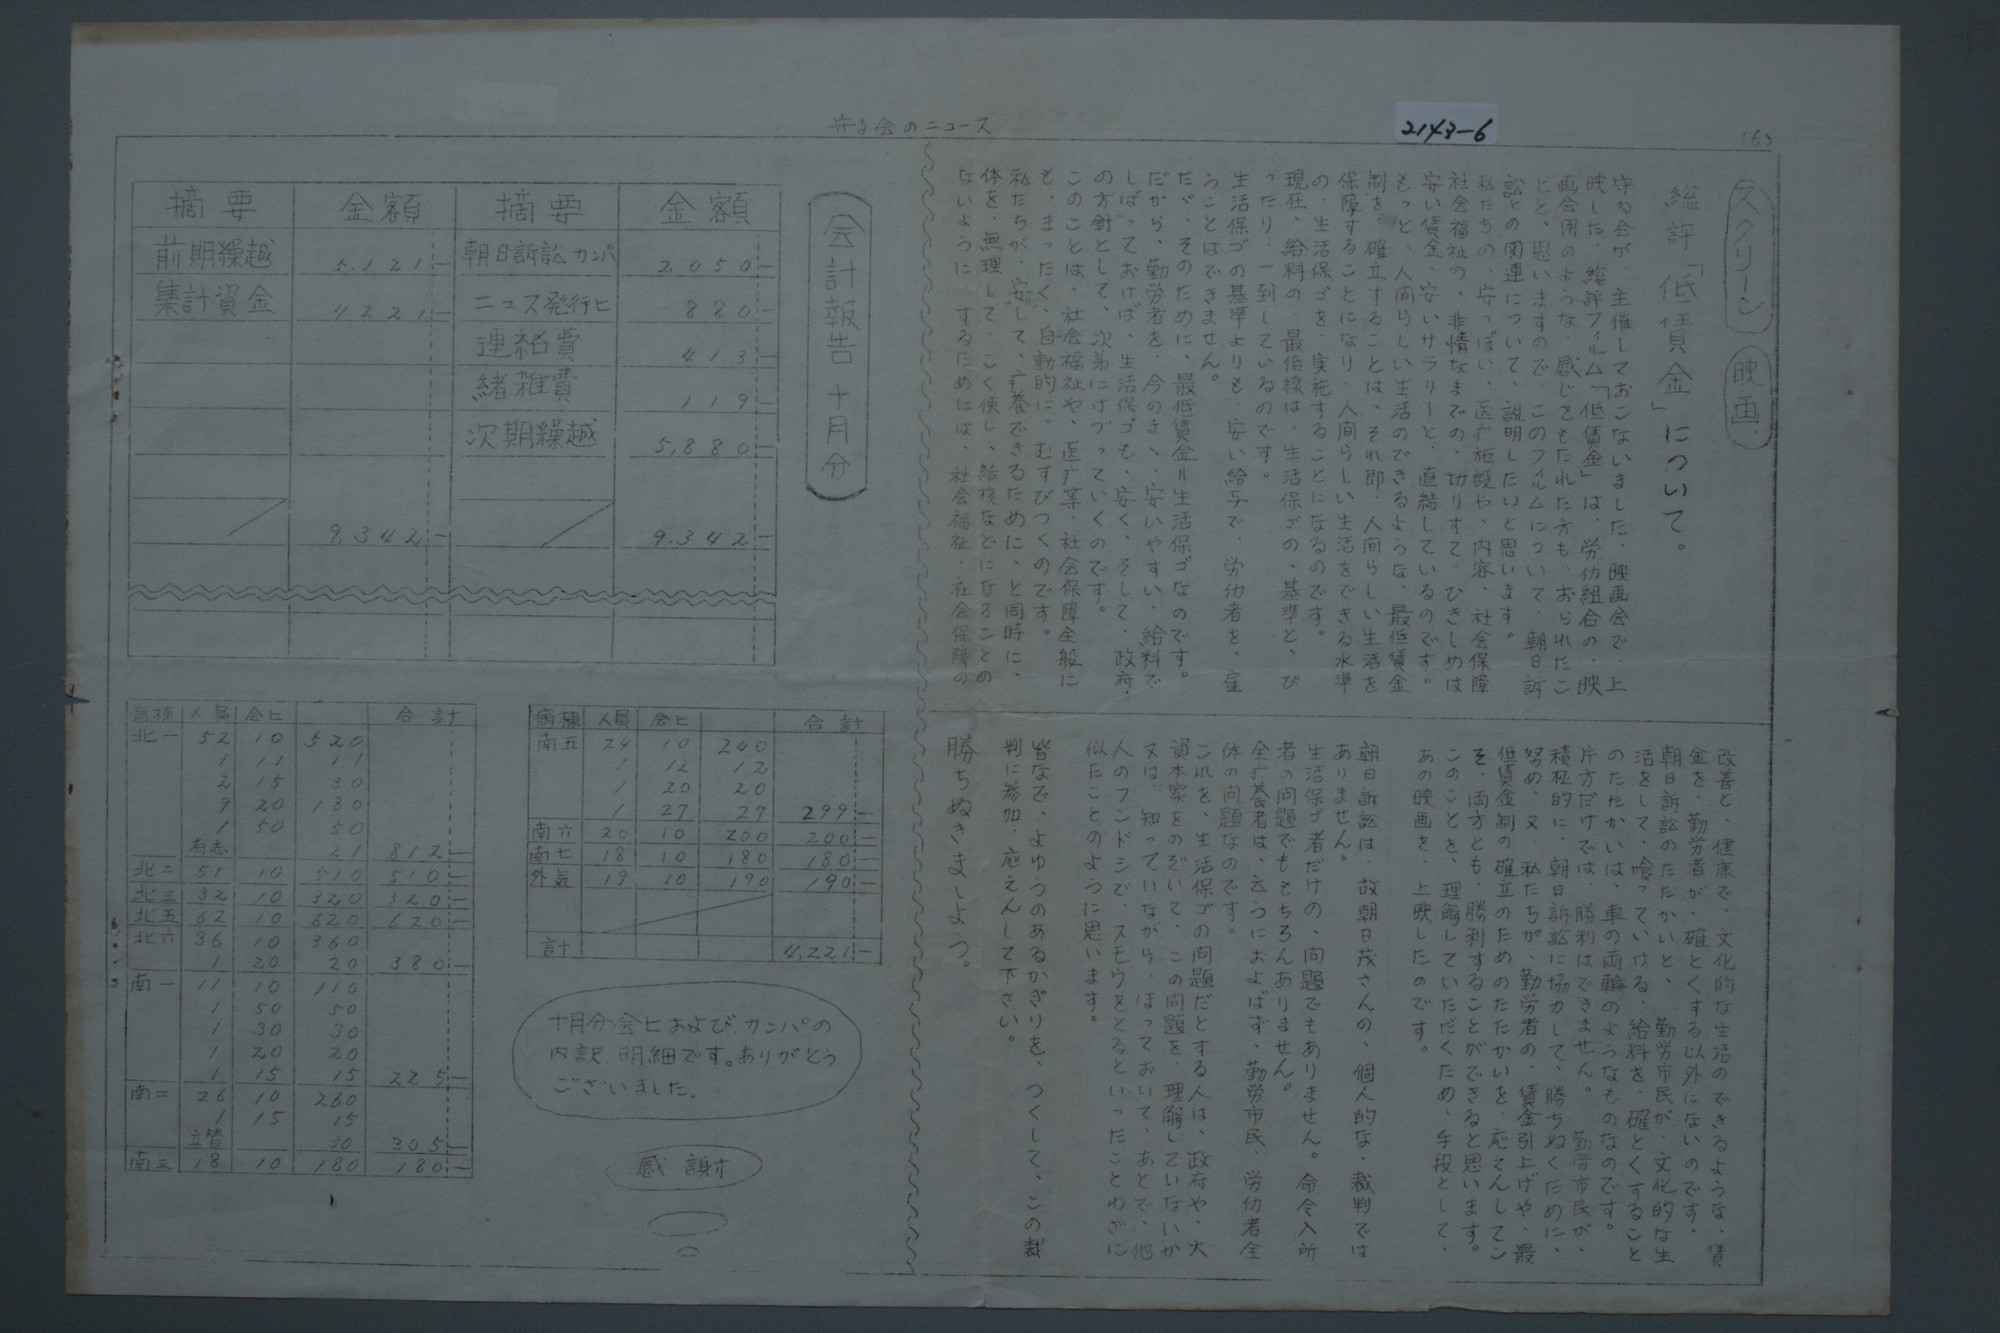 守る会のニュース
2143-6
(6)
スクリーン
映画
総評「低賃金」について。
守る会が、主催しておこないました、映画会で、上
映した、総評フィルム「低賃金」は、労仂組合の、映
画会用のような、感じをもたれた方も、おられたこ
とと、思いますので、このフィルムについて、朝日訴
訟との関連について、説明したいと思います。
私たちの、安っぽい、医疒施設や、内容、社会保障
社会福祉の、非情なまでの、切りすて、ひきしめは
安い賃金、安いサラリーと、直結しているのです。
もっと、人間らしい生活のできるような、最低賃金
制を、確立することは、それ即、人間らしい生活を
保障することになり、人間らしい生活をできる水準
の、生活保ゴを、実施することになるのです。
現在、給料の、最低線は、生活保ゴの、基準と、ぴ
ったり、一到しているのです。
生活保ゴの基準よりも、安い給与で、労仂者を、雇
うことはできません。
だが、そのために、最低賃金=生活保ゴなのです。
だから、勤労者を、今のまゝ、安いやすい、給料で
しばっておけば、生活保ゴも、安く、そして、政府、
の方針として、次第にけづっていくのです。
このことは、社会福祉や、医疒等、社会保障全般に
も、まったく、自動的に、むすびつくのです。
私たちが、安心して、疒養できるために、と同時に、
体を、無理して、こく使し、結核などになることの
ないように、するためには、社会福祉、社会保障の
改善と、健康で、文化的な生活のできるような、賃
金を、勤労者が、確とくする以外にないのです。
朝日訴訟のたたかいと、勤労市民が、文化的な生
活をして、喰っていける、給料を、確とくすること
のたたかいは、車の両輪のようなものなのです。
片方だけでは、勝利はできません。勤労市民が、
積極的に、朝日訴訟に協力して、勝ちぬくために、
努め、又、私たちが、勤労者の、賃金引上げや、最
低賃金制の確立のためのたたかいを、応えんしてこ
そ、両方とも、勝利することができると思います。
このことを、理解していただくため、手段として、
あの映画を、上映したのです。
朝日訴訟は、故朝日茂さんの、個人的な、裁判では
ありません。
生活保ゴ者だけの、問題でもありません。命令入所
者の問題でももちろんありません。
全疒養者は、云うにおよばず、勤労市民、労仂者全
体の問題なのです。
これを、生活保ゴの問題だとする人は、政府や、大
資本家をのぞいて、この問題を、理解していないか
又は、知っていながら、ほっておいて、あとで、他
人のフンドシで、スモウをとるといったことわざに
似たことのように思います。
皆なで、よゆうのあるかぎりを、つくして、この裁
判に参加、応えんして下さい。
勝ちぬきましよう。
会計報告 十月分
摘要 金額 摘要 金額
前期繰越 5.121- 朝日訴訟カンパ 2.050-
集計資金 4221- ニュス発行ヒ 880-
連絡費 413-
緒雑費 119-
次期繰越 5,880-
9,342- 9.342-
病棟 人員 会ヒ 合計
北一 52 10 520
1 11 11
2 15 30
9 20 180
1 50 50
有志 21 812-
北二 51 10 510 510-
北三 32 10 320 320-
北五 62 10 620 620-
北六 36 10 360
1 20 20 380-
南一 11 10 110
1 50 50
1 30 30
1 20 20
1 15 15 225-
南二 26 10 260
1 15 15
立替 30 305-
南三 18 10 180 180-
病棟 人員 会ヒ 合計
南五 24 10 240
1 12 12
1 20 20
1 27 27 299-
南六 20 10 200 200-
南七 18 10 180 180-
外気 19 10 190 190-
計 4,221-
十月分会ヒおよび、カンパの
内訳 明細です。ありがとう
ございました。
感謝